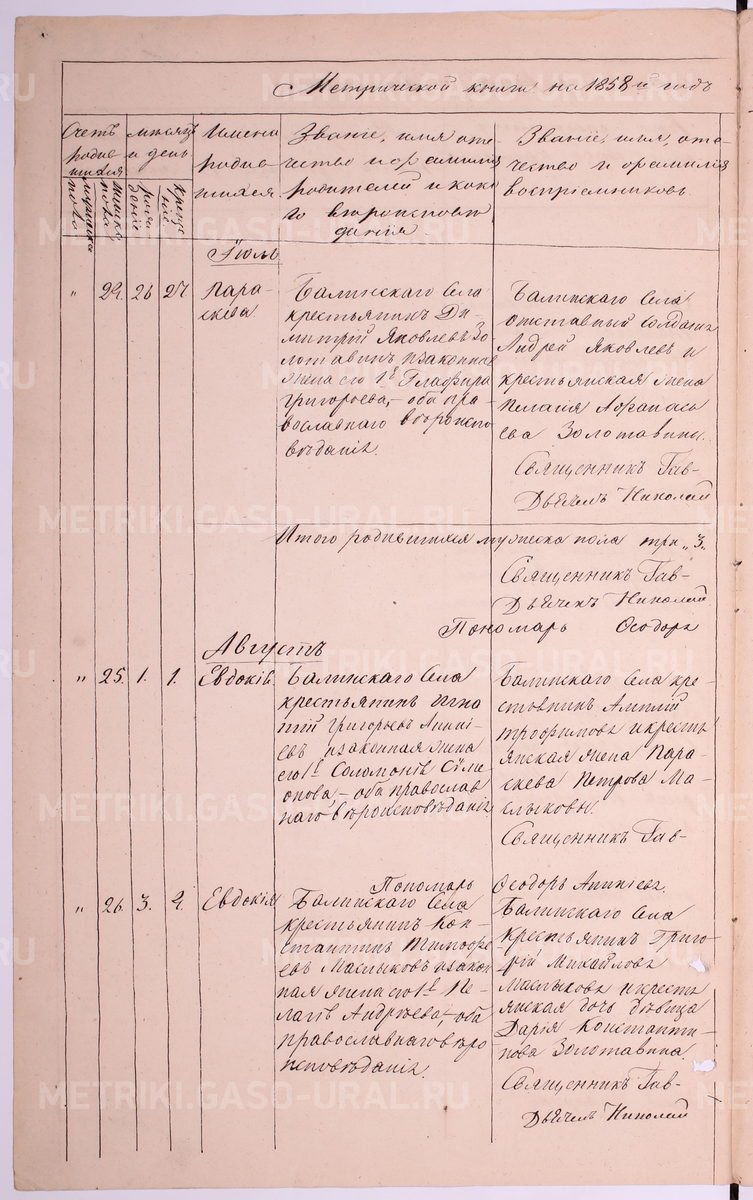 Метрической книги на 1858й годъ
Счетъ родив шихся
мужеска пола
женска пола
мѣсяцъ и день
рож дение
креще ние
Имена родив шихся.
Званіе, имя оте чество и фамилия родителей и како го вѣроисповѣ данія.
Званіе, имя, оте чество и фамилія воспріемниковъ.
Іюль
„ 24. 26 27
Пара-
скева.
Балинскаго Села
крестьянинъ Ди-
митрій Яковлевъ Зо
лотавинъ и законная
жена его 1я Глафира
Григорьева, – оба пра-
вославнаго вѣроиспо
вѣданія.
Балинскаго Села
отставный солдатъ
Андрей Яковлевъ и
крестьянская жена
Пелагия Афанась
ева Золотавины.
Священникъ Гав-
Дьячекъ Николай
Итого родившихся мужеска пола три „3„
Священникъ Гав-
Дьячекъ Николай
Пономарь Ѳеодоръ
Августъ
„ 25. 1. 1.
Евдокія.
Балинскаго Села
крестьянинъ Игна
тій Григорьевъ Аникі-
евъ и законная жена
его 1я Соломонія Сѵме
онова, – оба православ
наго вѣроисповѣданія.
Балинскаго Села кре-
стьянинъ
Трофимовъ и кресть
янская жена Пара-
скева Петрова Ма-
слыковы.
Священникъ Гав-
Пономарь Ѳеодоръ Аникіевъ.
„ 26. 3. 4.
Евдокія
Балинскаго Села
крестьянинъ Кон-
стантинъ Тимофе
евъ Маслыковъ и закон
ная жена его 1я Пе-
лагія Андреева, – оба
православнаго вѣро
исповѣданія.
Балинскаго Села
Крестьянинъ Григо-
рій Михайловъ
Маслыковъ и кресть
янская дочь дѣвица
Дарія Константи-
нова Золотавина.
Священникъ Гав-
Дьячекъ Николай
METRIKI.GASO-URAL.RU